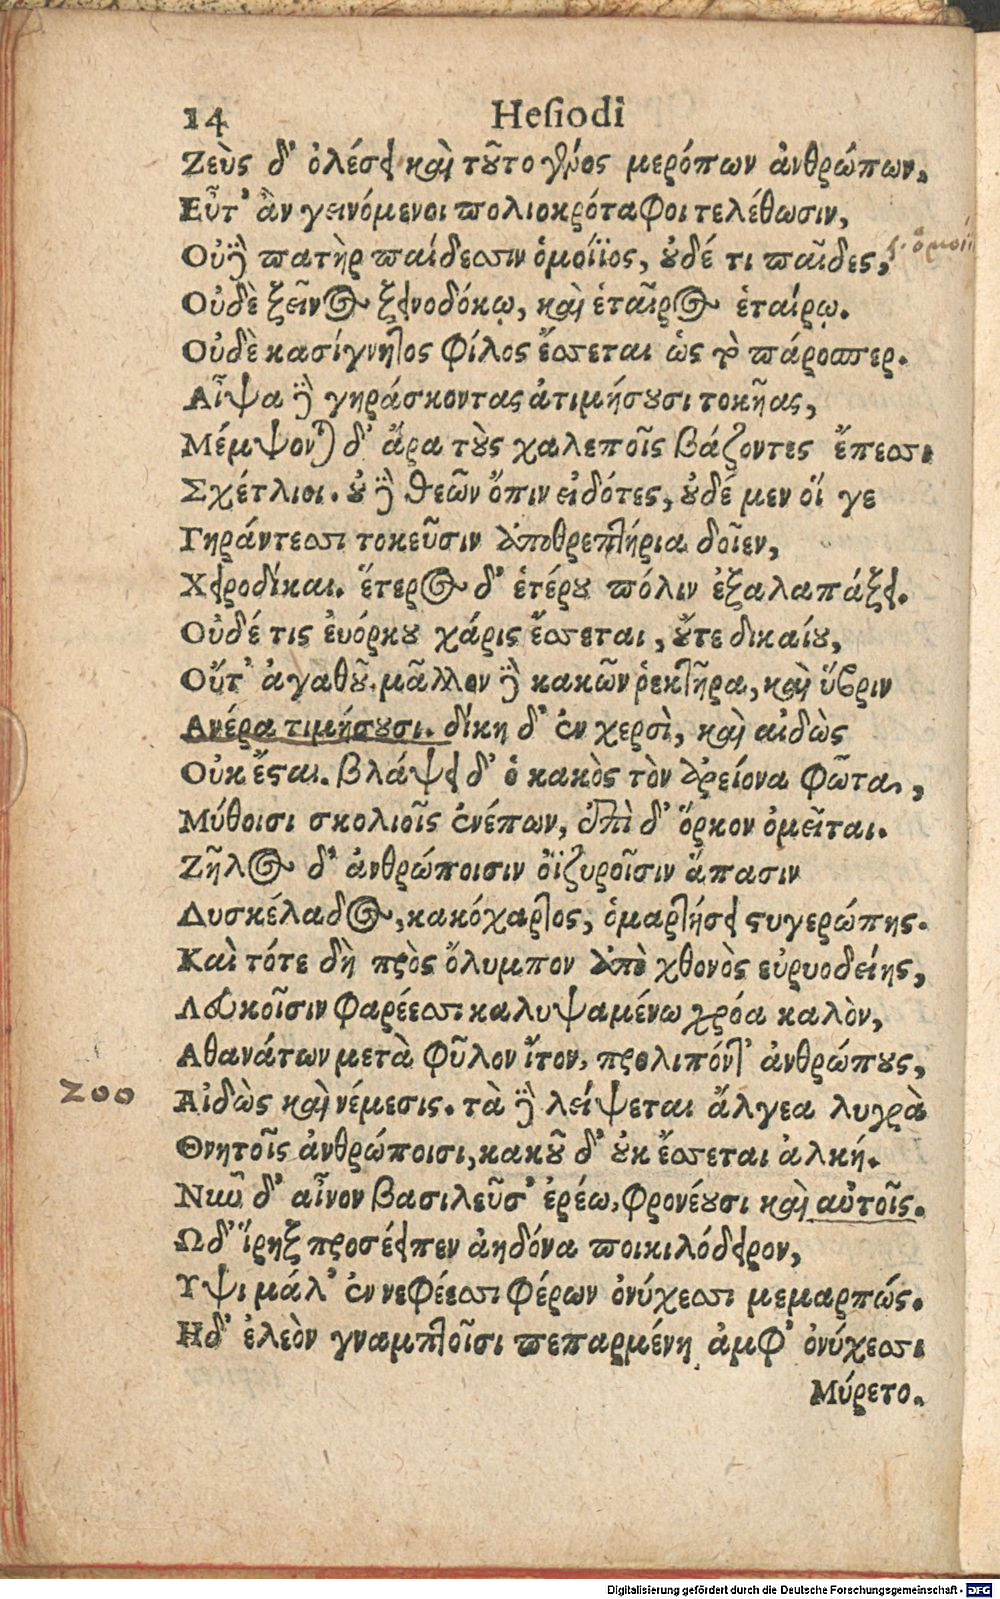 14 Hesiodi
Ζεὺς δ' ὀλέσει καὶ τοῦτο γένος μερόπων ἀνθρώπων,
Εὖτ' ἂν γεινόμενοι πολιοκρόταφοι τελέθωσιν,
Οὐδὲ πατὴρ παίδεσσιν ὁμοίϊος, οὐδέ τι παῖδες,
Οὐδὲ ξεῖνος ξεινοδόκῳ, καὶ ἑταῖρος ἑταίρῳ.
Οὐδὲ κασίγνητος φίλος ἔσσεται ὡς τὸ πάροσπερ.
Αἶψα δὲ γηράσκοντας ἀτιμήσουσι τοκῆας,
Μέμψονται δ' ἄρα τοὺς χαλεποῖς βάζοντες ἔπεσσι
Σχέτλιοι. οὐδὲ θεῶν ὄπιν εἰδότες, οὐδέ μεν οἵ γε
Γηράντεσσι τοκεῦσιν ἀποθρεπτήρια δοῖεν,
Χειροδίκαι. ἕτερος δ' ἑτέρου πόλιν ἐξαλαπάξει.
Οὐδέ τις εὐόρκου χάρις ἔσσεται, οὔτε δικαίου,
Οὔτ' ἀγαθοῦ. μᾶλλον δὲ κακῶν ῥεκτῆρα, καὶ ὕβριν
Ανέρα τιμήσουσι. δίκη δ' ἐν χερσὶ, καὶ αἰδὼς
Οὐκ ἔσται. βλάψει δ' ὁ κακὸς τὸν ἀρείονα φῶτα,
Μύθοισι σκολιοῖς ἐνέπων, ἐπὶ δ' ὅρκον ὀμεῖται.
Ζῆλος δ' ἀνθρώποισιν ὀϊζυροῖσιν ἅπασιν
Δυσκέλαδος, κακόχαρτος, ὁμαρτήσει στυγερώπης.
Καὶ τότε δὴ πρὸς ὄλυμπον ἀπὸ χθονὸς εὐρυοδείης,
Λευκοῖσιν φαρέεσσι καλυψαμένω χρόα καλὸν,
Αθανάτων μετὰ φῦλον ἴτον, προλιπόντ' ἀνθρώπους,
200 Αἰδὼς καὶ νέμεσις. τὰ δὲ λείψεται ἄλγεα λυγρὰ
Θνητοῖς ἀνθρώποισι, κακοῦ δ' οὐκ ἔσσεται ἀλκή.
Νῦν δ' αἶνον βασιλεῦσ' ἐρέω, φρονέουσι καὶ αὐτοῖς.
Ωδ' ἴρηξ προσέειπεν ἀηδόνα ποικιλόδειρον,
Υψι μάλ' ἐν νεφέεσσι φέρων ὀνύχεσσι μεμαρπώς.
Ηδ' ἐλεὸν γναμπτοῖσι πεπαρμένη ἀμφ' ὀνύχεσσι
Μύρετο.
Digitalisierung gefördert durch die Deutsche Forschungsgemeinschaft - DFG